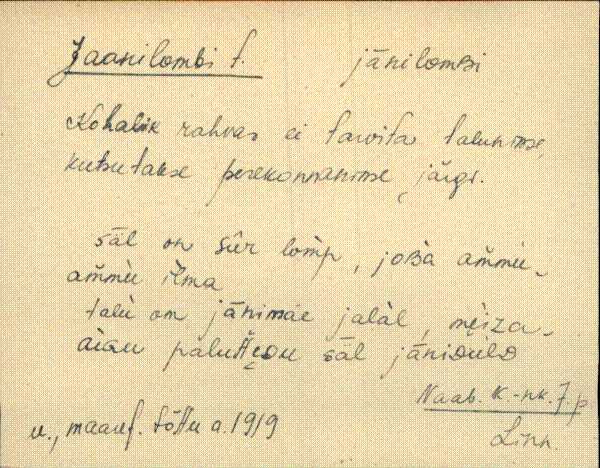 Jaanilombi t. jānilomʙi
Kohalik rahvas ei tarvita talunime,
kutsutakse perekonnanime järgi.
säl on sūr lomp, joʙa ammu-
ammu ilma
talu on jānimäe jalal, mẹiza-
aiɢu
säl jāniᴅulᴅ
Naab. k.-nk. J. p.
u., maaref. tõttu a. 1919
Linn.